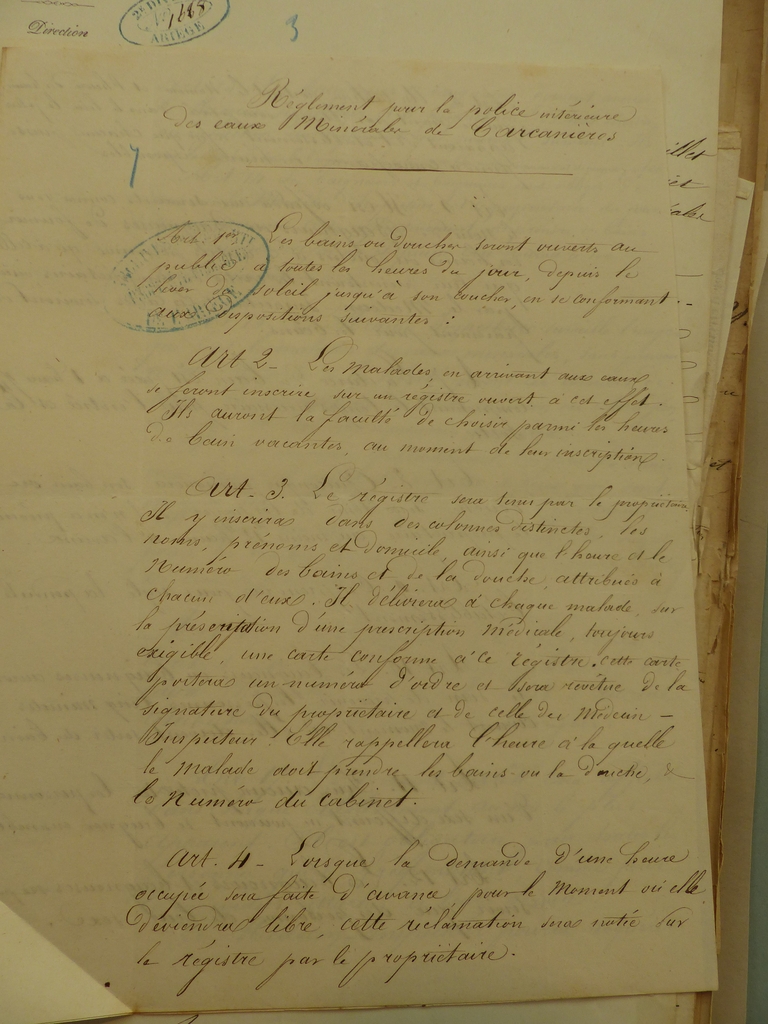 Direction
1868
ARIÈGE
3
Réglement pour la police intérieure
des eaux Minérales de Carcanières
7
Art. 1er Les bains ou douches seront ouverts au
public, à toutes les heures du jour, depuis le
lever du soleil jusqu'à son coucher, en se conformant
aux dispositions suivantes :
Art 2 - Les malades, en arrivant aux eaux
se feront inscrire sur un régistre ouvert à cet effet.
Ils auront la faculté de choisir parmi les heures
de bain vacantes, au moment de leur inscription.
Art. 3. Le régistre sera tenu par le propriétaire.
Il y inscrira dans des colonnes distinctes, les
noms, prénoms et domicile, ainsi que l'heure et le
Numéro des baines et de la douche, attribués à
chacun d'eux. Il délivrera à chaque malade, sur
la présentation d'une prescription médicale, toujours
exigible, une carte conforme à ce régistre. cette carte
portera un numéro d'ordre et sera revêtue de la
signature du propriétaire et de celle du Médecin -
Inspecteur. Elle rappellera l'heure à la quelle
le malade doit prendre les bains ou la douche, &
le Numéro du cabinet.
Art. 4 - Lorsque la demande d'une heure
occupée sera faite d'avance pour le moment où elle
deviendra libre, cette réclamation sera notée sur
le régistre par le propriétaire.